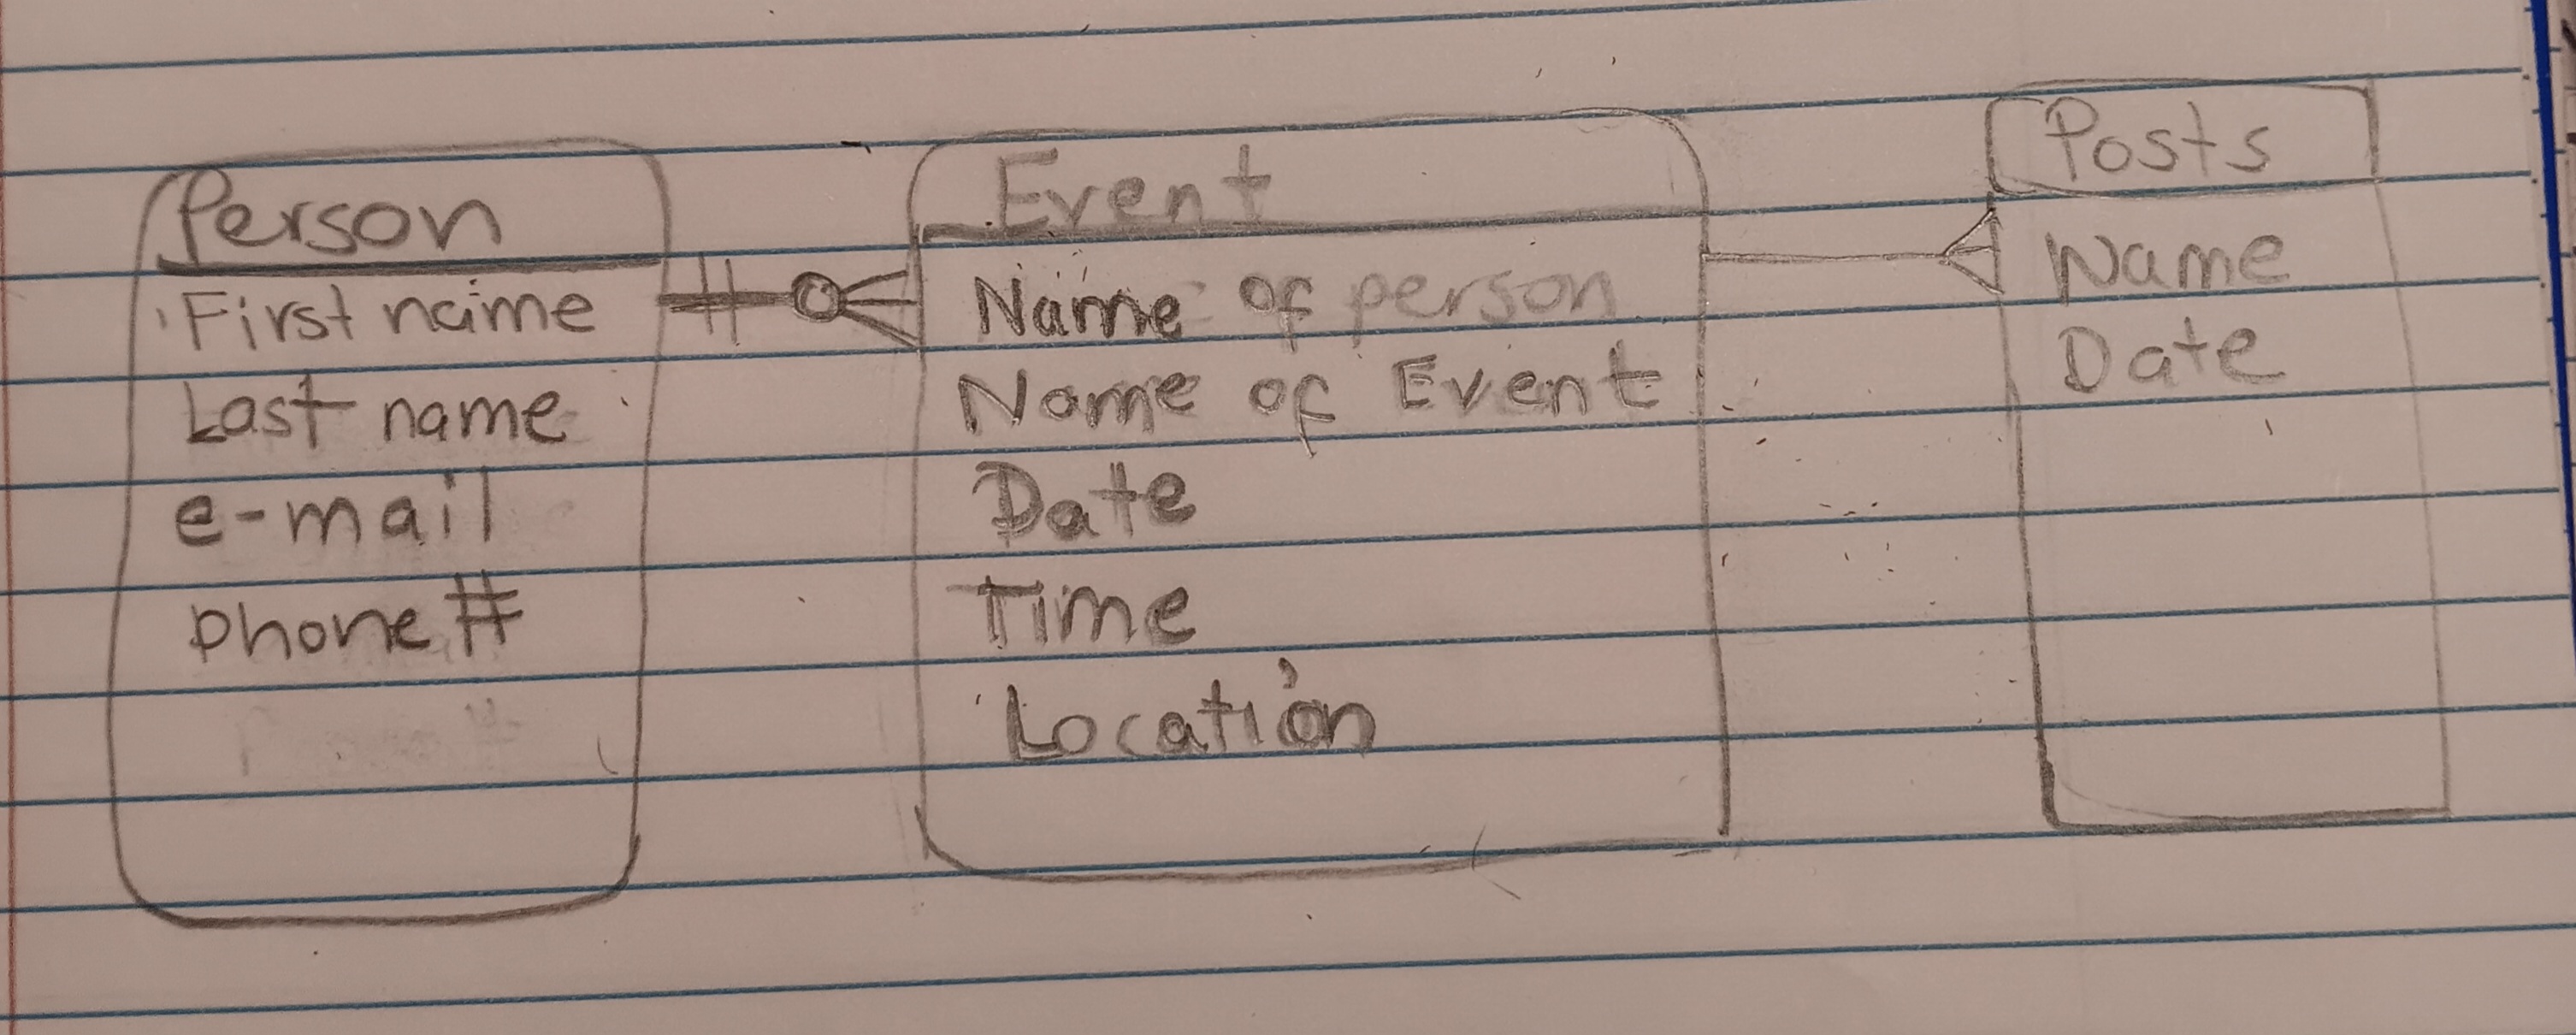 Person
First name
Last name
e-mail
phone #
Event
Name of person
Name of Event
Date
Time
Location
Posts
Name
Date